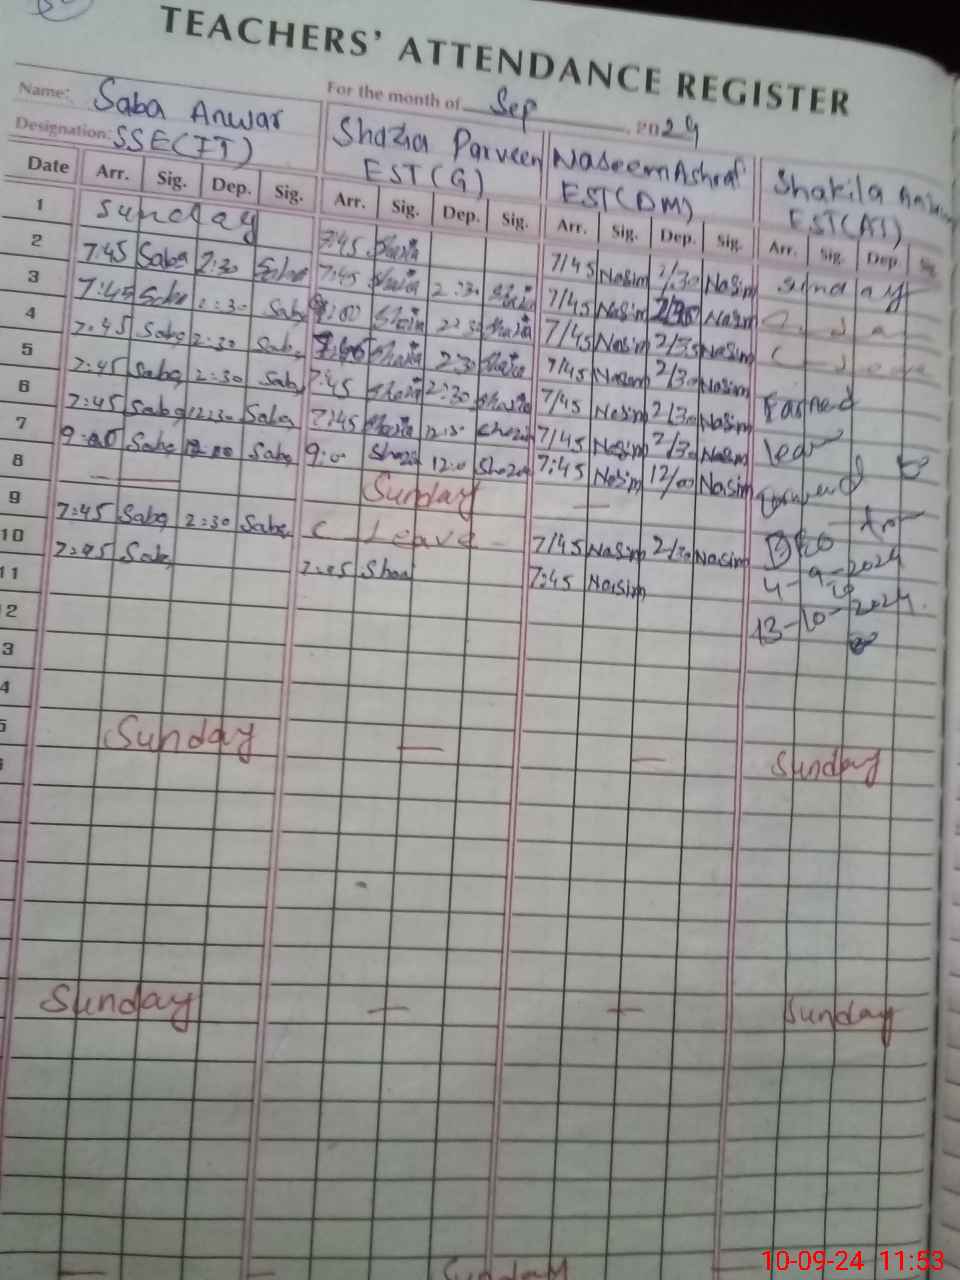 TEACHERS' ATTENDANCE REGISTER
Name: Saba Anwar For the month of Sep, 2024
Designation: SSE(IT) Shazia Parveen EST(G) Naseem Ashraf EST(DM) Shakila EST(AT)
Date Arr. Sig. Dep. Sig. Arr. Sig. Dep. Sig. Arr. Sig. Dep. Sig. Arr. Sig. Dep. Sig.
1 Sunday 7:45 Shazia Sunday
2 7:45 Saba 2:30 Saba 7:45 Shazia 2:30 Shazia 7/45 Nasim 2/30 Nasim
3 7:45 Saba 2:30 Saba Shazia 2:30 Shazia 7/45 Nasim Nasim
4 7:45 Saba 2:30 Saba Shazia 2:30 Shazia 7/45 Nasim 2/30 Nasim Earned
5 7:45 Saba 2:30 Saba 7:45 Shazia 2:30 Shazia 7/45 Nasim 2/30 Nasim
6 7:45 Saba 12:30 Saba 7:45 Shazia 12:30 Shazia 7/45 Nasim 2/30 Nasim
7 9:00 Saba 12:00 Saba 9:0 Shazia 12:0 Shazia 7/45 Nasim 2/30 Nasim
8 — Sunday — 7:45 Nasim 12/00 Nasim
9 7:45 Saba 2:30 Saba C Leave 7/45 Nasim 2/30 Nasim
10 7:45 Saba 7:45 Shaz 7:45 Nasim 4-9-2024
11 13-10-2024
2
3
4
5 Sunday — — Sunday
Sunday — — Sunday
— — Sunday —
10-09-24 11:53